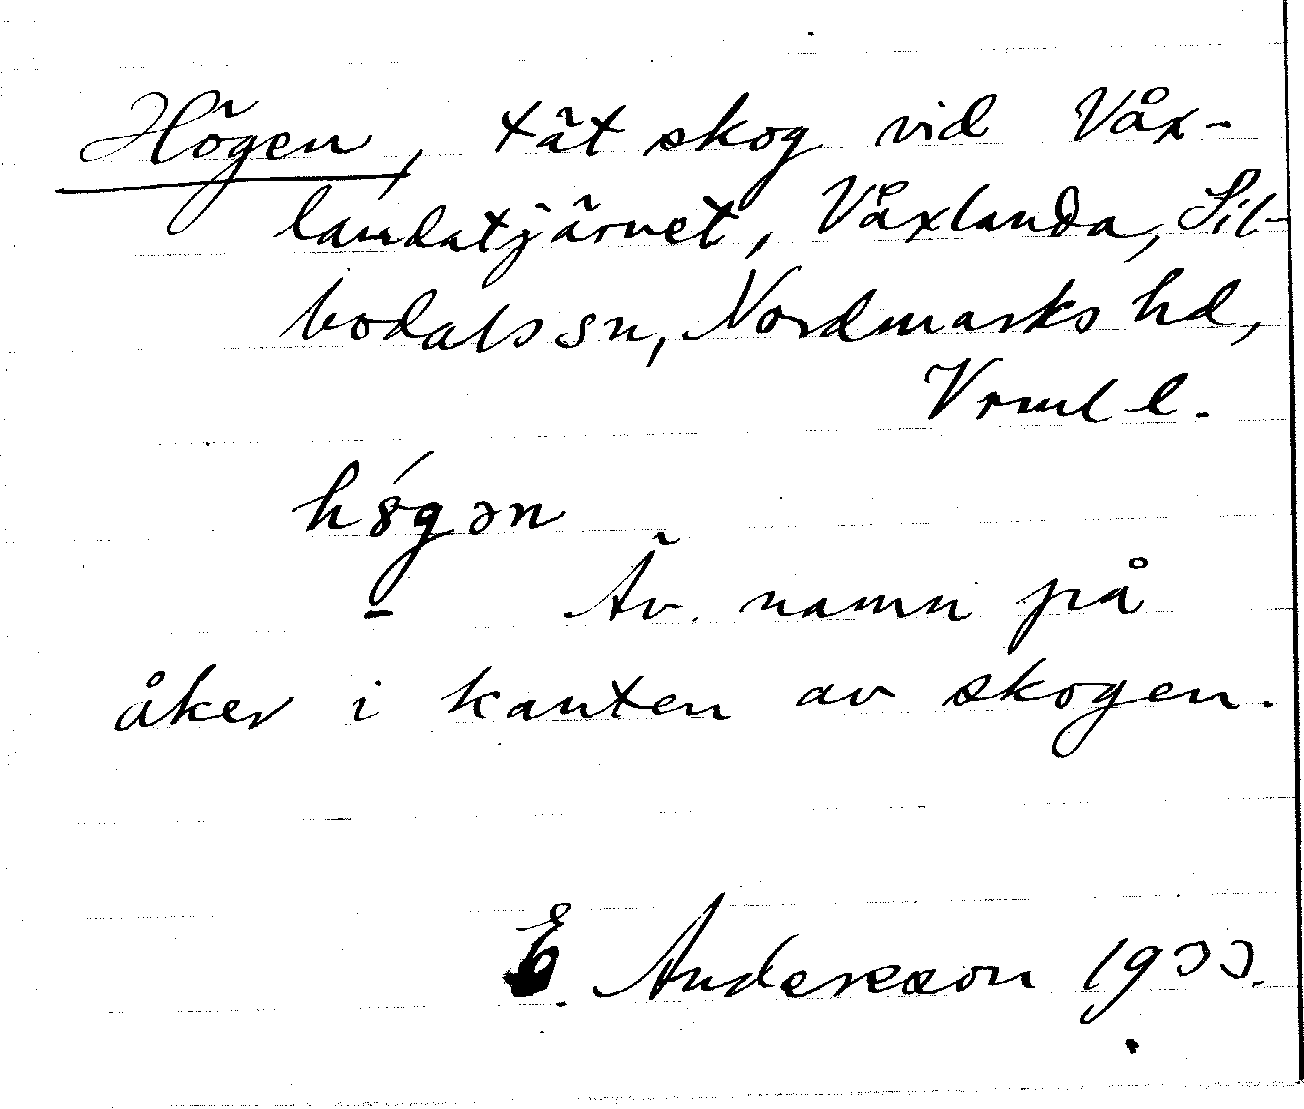 Högen, tät skog vid Våx-
landatjärnet, Våxlanda, Sil-
bodals sn, Nordmarks hd,
Vrml l.
högən
Äv. namn på
åker i kanten av skogen.
E. Andersson 1933.